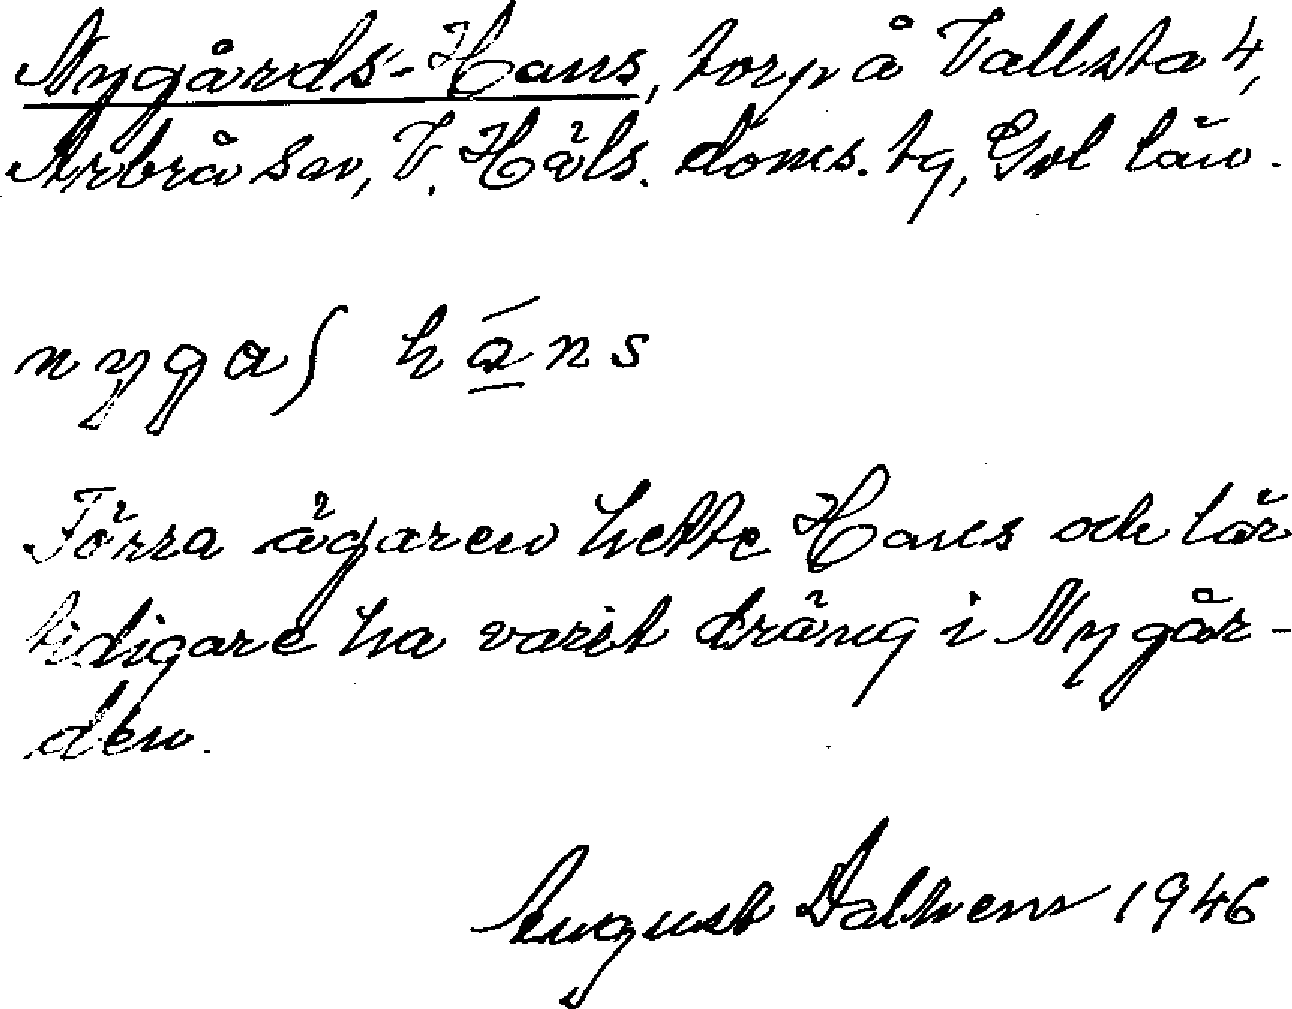 Nygårds-Hans, torp å Vallsta 4,
Arbrå sn, V. Häls. doms. tg, Gvl län.
nygaʃ há̠ns
Förra ägaren hette Hans och lär
tidigare ha varit dräng i Nygår-
den.
August Dalhem 1946